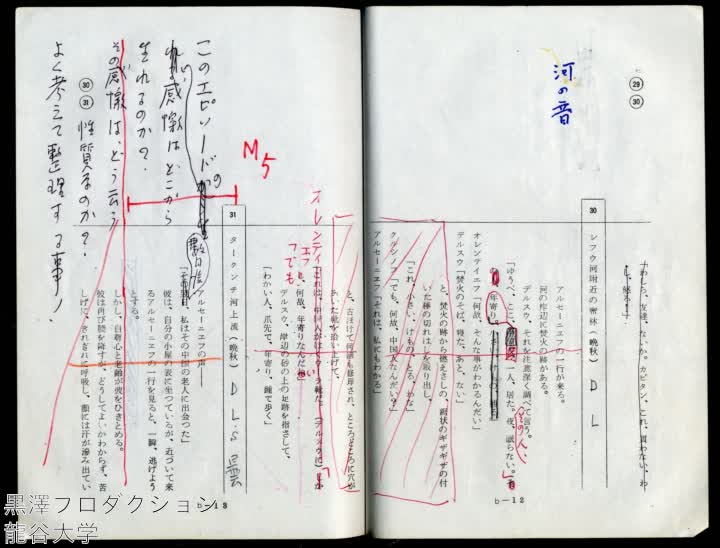 ㉙
㉚
河の音
「わしら、友達、ないか。カピタン、これ、買わない、わし、怒る!」
30
レフウ河附近の密林(晩秋) D L
アルセーニエフの一行が来る。
河の作辺に焚火の跡がある。
デルスウ、それを注意深く調べて言う。
「ゆうべ、ここ、
年寄り
一人、居た。夜、眠らない。
オレンティエフ「何故、そんな事がわかるんだい」
デルスウ「焚火のそば、寝た、あと、ない」
と、焚火の跡から燃えさしの、鋸状のギザギザの付いた棒の切れはしを取り出し、
「これ、小さい、けもの、とる、わな」
アルセーニエフ「それは、私にもわかる」
b—12
と、古ぼけて何度も修理され、ところどころに穴があいた靴を拾い上げて、
オレンティエフ
「でも、何故、年寄りなんだい」
デルスウ、岸辺の砂の上の足跡を指さして、
「わかい人、爪先で、年寄り、踵で歩く」
M5
31
タークンチ河上流(晩秋) D L・S 曇
アルセーニエフの声——
私はその中国の老人に出会つた」
彼は、自分の小屋の表に坐つているが、近づいて来るアルセーニエフの一行を見ると、一瞬、逃げようとする。
しかし、自尊心と老齢が彼をひきとめる。
彼は再び腰を降すが、どうしてよいかわからず、苦しげに、きれぎれに呼吸し、顔には汗が滲み出てい
b—13
このエピソードの
感懐はどこから
生れるのか?
その感懐は、どう云う
性質なるのか?
㉚
㉛
よく考えて整理する事!
黒澤プロダクション
龍谷大学